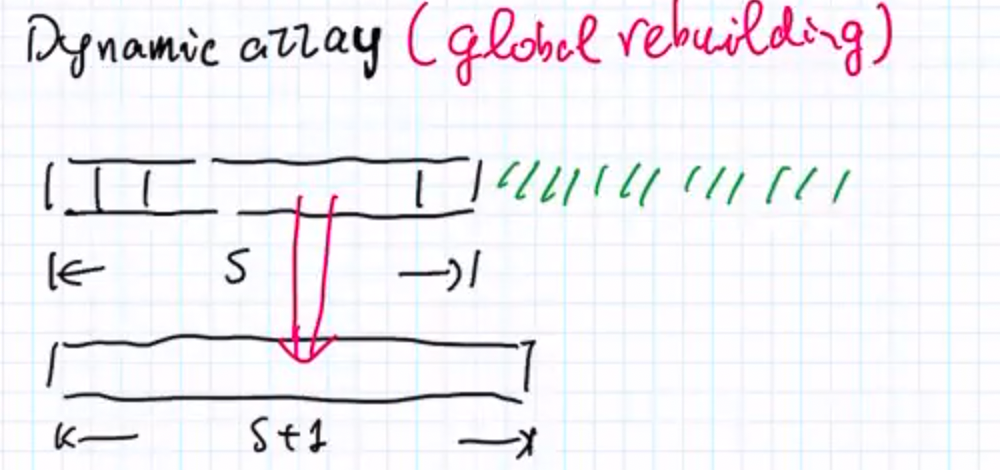 Dynamic array (global rebuilding)
S
S+1